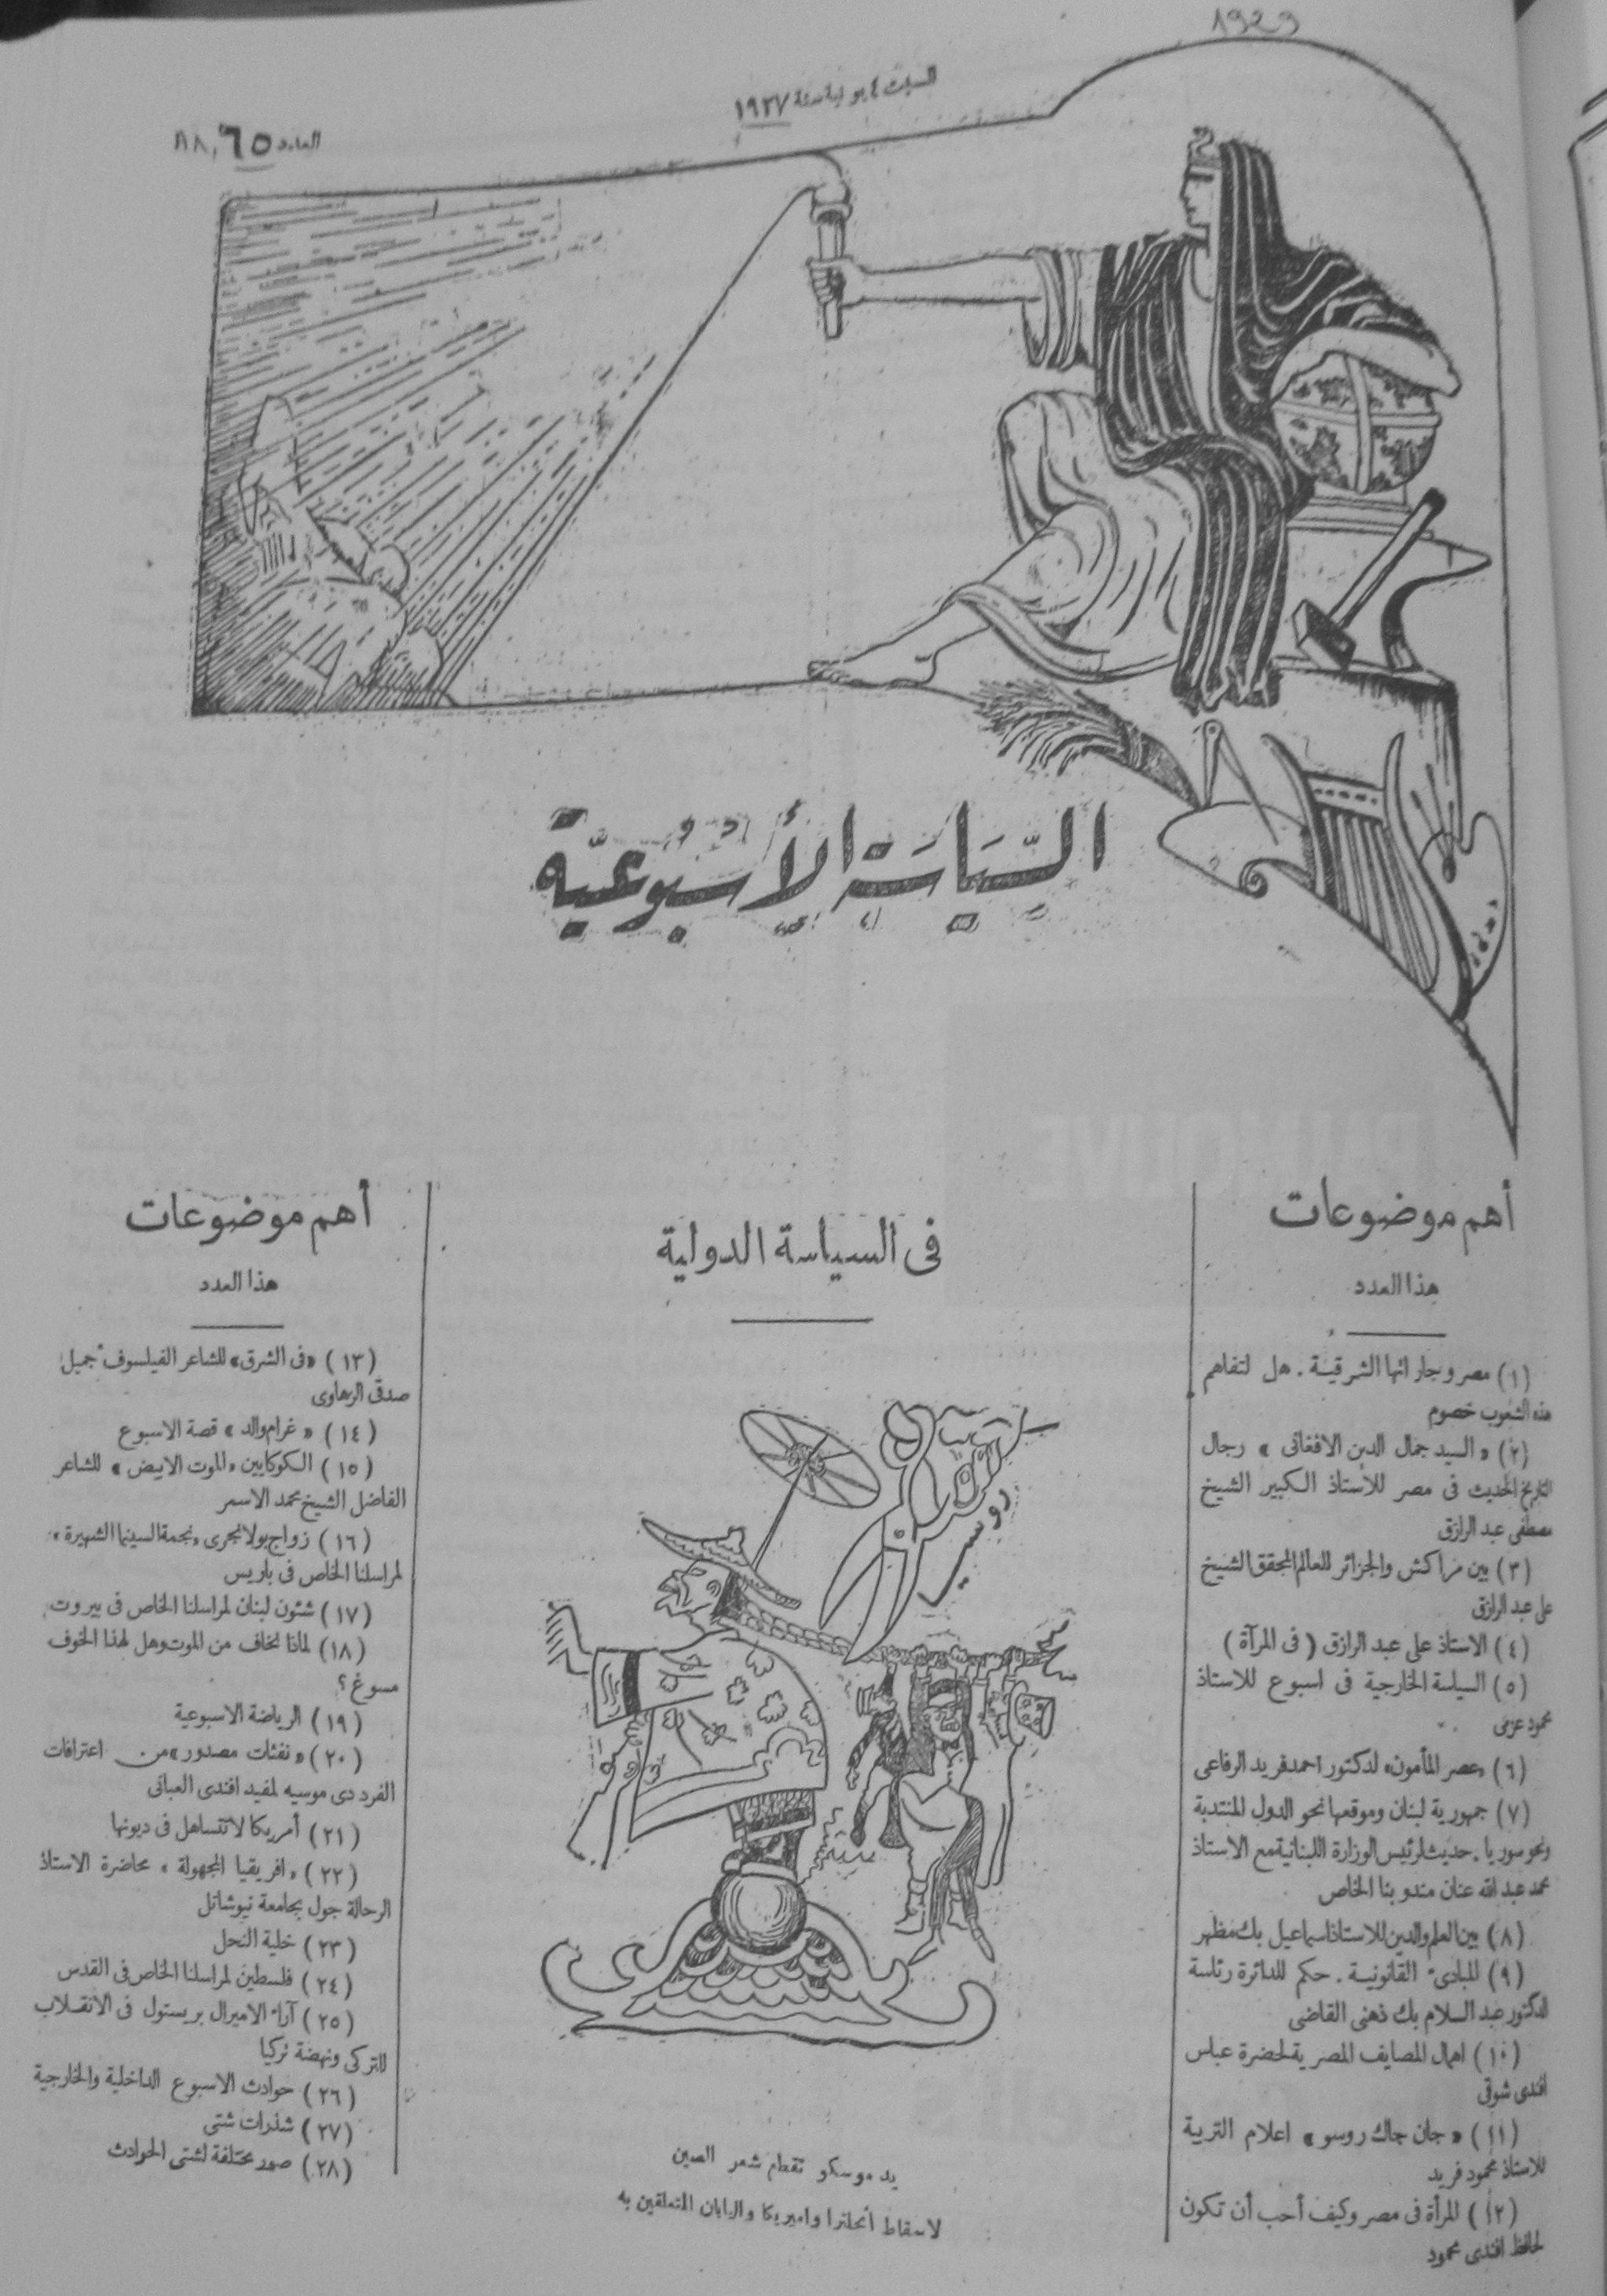 ١٩٢٩
السبت ٤ يونية سنة ١٩٢٧
العدد ٦٥
السياسة الأسبوعية
أهم موضوعات
هذا العدد
(١) مصر وجاراتها الشرقية . هل لتفاهم
هذه الشعوب خصوم
(٢) « السيد جمال الدين الافغانى » رجال
التاريخ الحديث فى مصر للأستاذ الكبير الشيخ
مصطفى عبد الرازق
(٣) بين مراكش والجزائر للعالم المحقق الشيخ
على عبد الرازق
(٤) الاستاذ على عبد الرازق ( فى المرآة )
(٥) السياسة الخارجية فى اسبوع للاستاذ
محمود عزمى
(٦) «عصر المأمون» لدكتور احمد فريد الرفاعى
(٧) جمهورية لبنان وموقعها نحو الدول المنتدبة
ونحو سوريا . حديث لرئيس الوزارة اللبنانية مع الاستاذ
محمد عبد الله عنان مندوبنا الخاص
(٨) بين العلم والدين للاستاذ اسماعيل بك مظهر
(٩) المبادئ القانونية . حكم للدائرة رئاسة
الدكتور عبد السلام بك ذهنى القاضى
(١٠) اهمال المصايف المصرية لحضرة عباس
افندى شوقى
(١١) « جان جاك روسو » اعلام التربية
للاستاذ محمود فريد
(١٢) المرأة فى مصر وكيف أحب أن تكون
لحافظ افندى محمود
فى السياسة الدولية
روسيا
الصين
يد موسكو تقطع شعر الصين
لاسقاط انجلترا واميريكا واليابان المتعلقين به
أهم موضوعات
هذا العدد
(١٣) «فى الشرق» للشاعر الفيلسوف جميل
صدقى الزهاوى
(١٤) « غرام والد » قصة الاسبوع
(١٥) الكوكايين «الموت الابيض» للشاعر
الفاضل الشيخ محمد الاسمر
(١٦) زواج بولا نجرى «نجمة السينما الشهيرة»
لمراسلنا الخاص فى باريس
(١٧) شئون لبنان لمراسلنا الخاص فى بيروت
(١٨) لماذا نخاف من الموت وهل لهذا الخوف
مسوغ ؟
(١٩) الرياضة الاسبوعية
(٢٠) « نفثات مصدور » من اعترافات
الفرد دى موسيه لمفيد افندى العبانى
(٢١) أمريكا لا تتساهل فى ديونها
(٢٢) « افريقيا المجهولة » محاضرة الاستاذ
الرحالة جول بجامعة نيوشاتل
(٢٣) خلية النحل
(٢٤) فلسطين لمراسلنا الخاص فى القدس
(٢٥) آراء الاميرال بريستول فى الانقلاب
التركى ونهضة تركيا
(٢٦) حوادث الاسبوع الداخلية والخارجية
(٢٧) شذرات شتى
(٢٨) صور مختلفة لشتى الحوادث